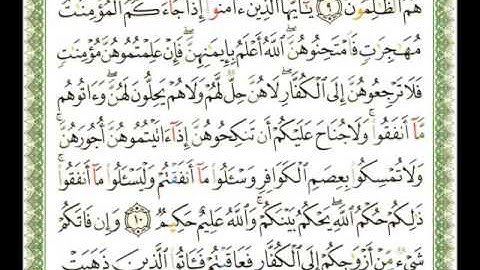 هُمُ ٱلظَّـٰلِمُونَ ٩ يَـٰٓأَيُّهَا ٱلَّذِينَ ءَامَنُوٓا۟ إِذَا جَآءَكُمُ ٱلْمُؤْمِنَـٰتُ
مُهَـٰجِرَٰتٍ فَٱمْتَحِنُوهُنَّ ۖ ٱللَّهُ أَعْلَمُ بِإِيمَـٰنِهِنَّ ۖ فَإِنْ عَلِمْتُمُوهُنَّ مُؤْمِنَـٰتٍ
فَلَا تَرْجِعُوهُنَّ إِلَى ٱلْكُفَّارِ ۖ لَا هُنَّ حِلٌّ لَّهُمْ وَلَا هُمْ يَحِلُّونَ لَهُنَّ ۖ وَءَاتُوهُم
مَّآ أَنفَقُوا۟ ۚ وَلَا جُنَاحَ عَلَيْكُمْ أَن تَنكِحُوهُنَّ إِذَآ ءَاتَيْتُمُوهُنَّ أُجُورَهُنَّ ۚ
وَلَا تُمْسِكُوا۟ بِعِصَمِ ٱلْكَوَافِرِ وَسْـَٔلُوا۟ مَآ أَنفَقْتُمْ وَلْيَسْـَٔلُوا۟ مَآ أَنفَقُوا۟ ۚ
ذَٰلِكُمْ حُكْمُ ٱللَّهِ ۖ يَحْكُمُ بَيْنَكُمْ ۚ وَٱللَّهُ عَلِيمٌ حَكِيمٌ ١٠ وَإِن فَاتَكُمْ
شَىْءٌ مِّنْ أَزْوَٰجِكُمْ إِلَى ٱلْكُفَّارِ فَعَاقَبْتُمْ فَـَٔاتُوا۟ ٱلَّذِينَ ذَهَبَتْ